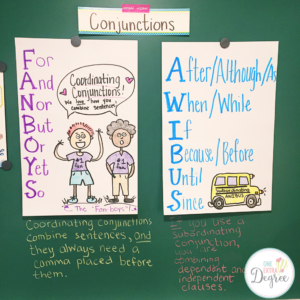 Conjunctions
For
And
Nor
But
Or
Yet
So
Coordinating
Conjunctions!
We love how you
combine sentences!
#1
fan
#1
fan
The "Fan boys"
After/Although/As
When/While
If
Because/Before
Until
Since
Coordinating conjunctions
combine sentences, and
they always need a
comma placed before
them.
If you use a
subordinating
conjunction,
you are
combining
dependent and
independent
clauses.
ONE
EXTRA
Degree